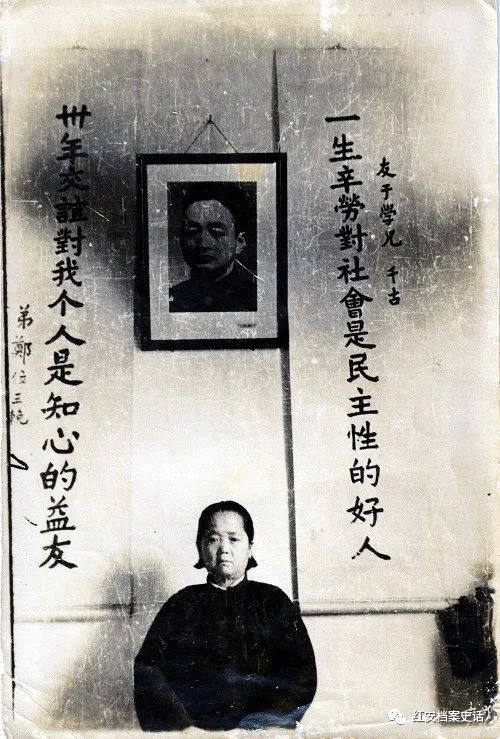 友于學兄 千古
一生辛勞對社會是民主性的好人
卅年交誼對我个人是知心的益友
弟鄭位三輓
红安档案史话